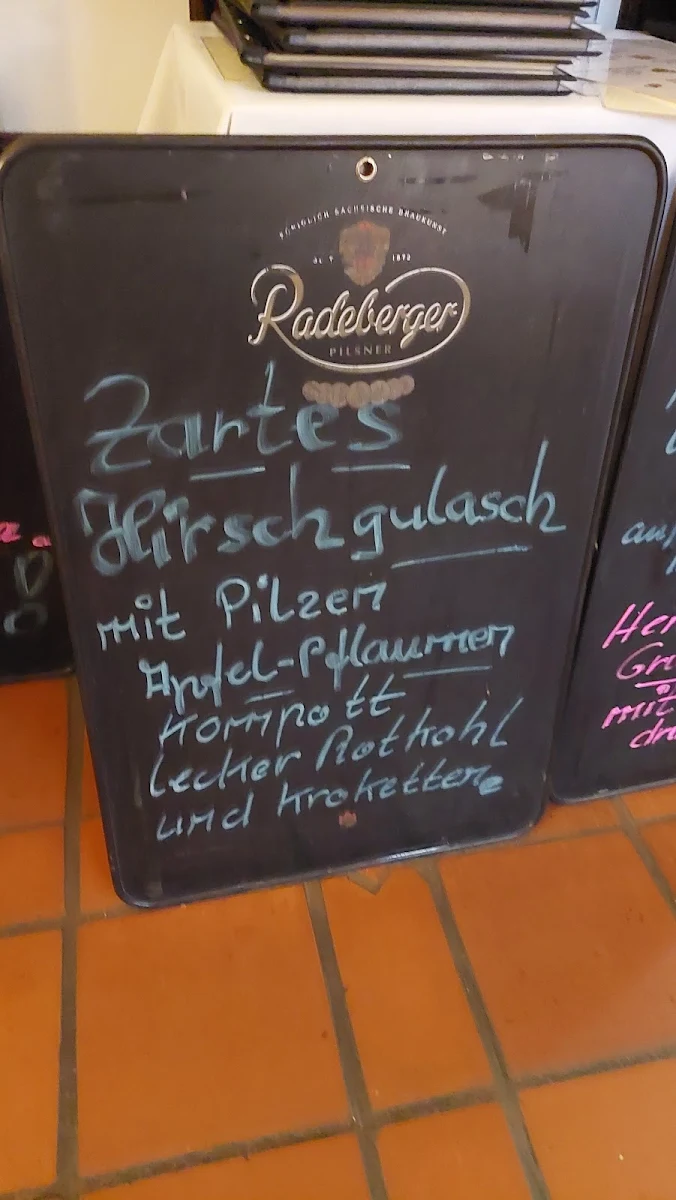 KÖNIGLICH SÄCHSISCHE BRAUKUNST
1872
Radeberger
PILSNER
Zartes
Hirschgulasch
mit Pilzen
Apfel-Pflaumen
Kompott
lecker Rotkohl
und Kroketten
mit